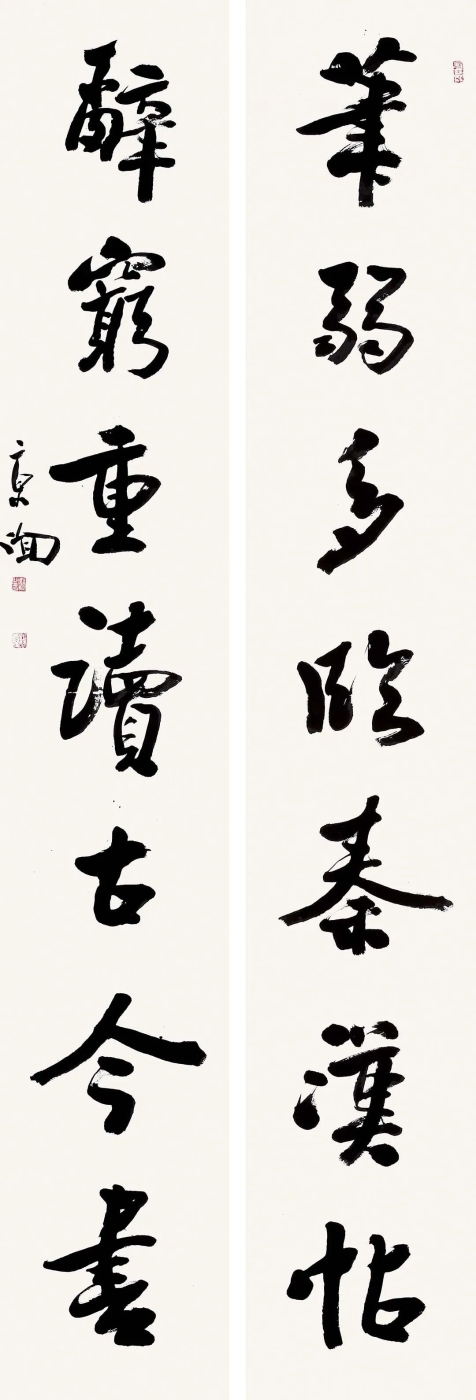 筆弱多臨秦漢帖
辭窮重讀古今書